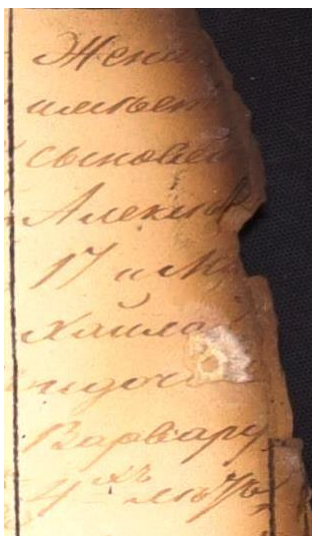 Жена
имѣет
сыновей
Алексѣ
17 и Ми
хаила
и доч
Варвару
4хъ лѣтъ,